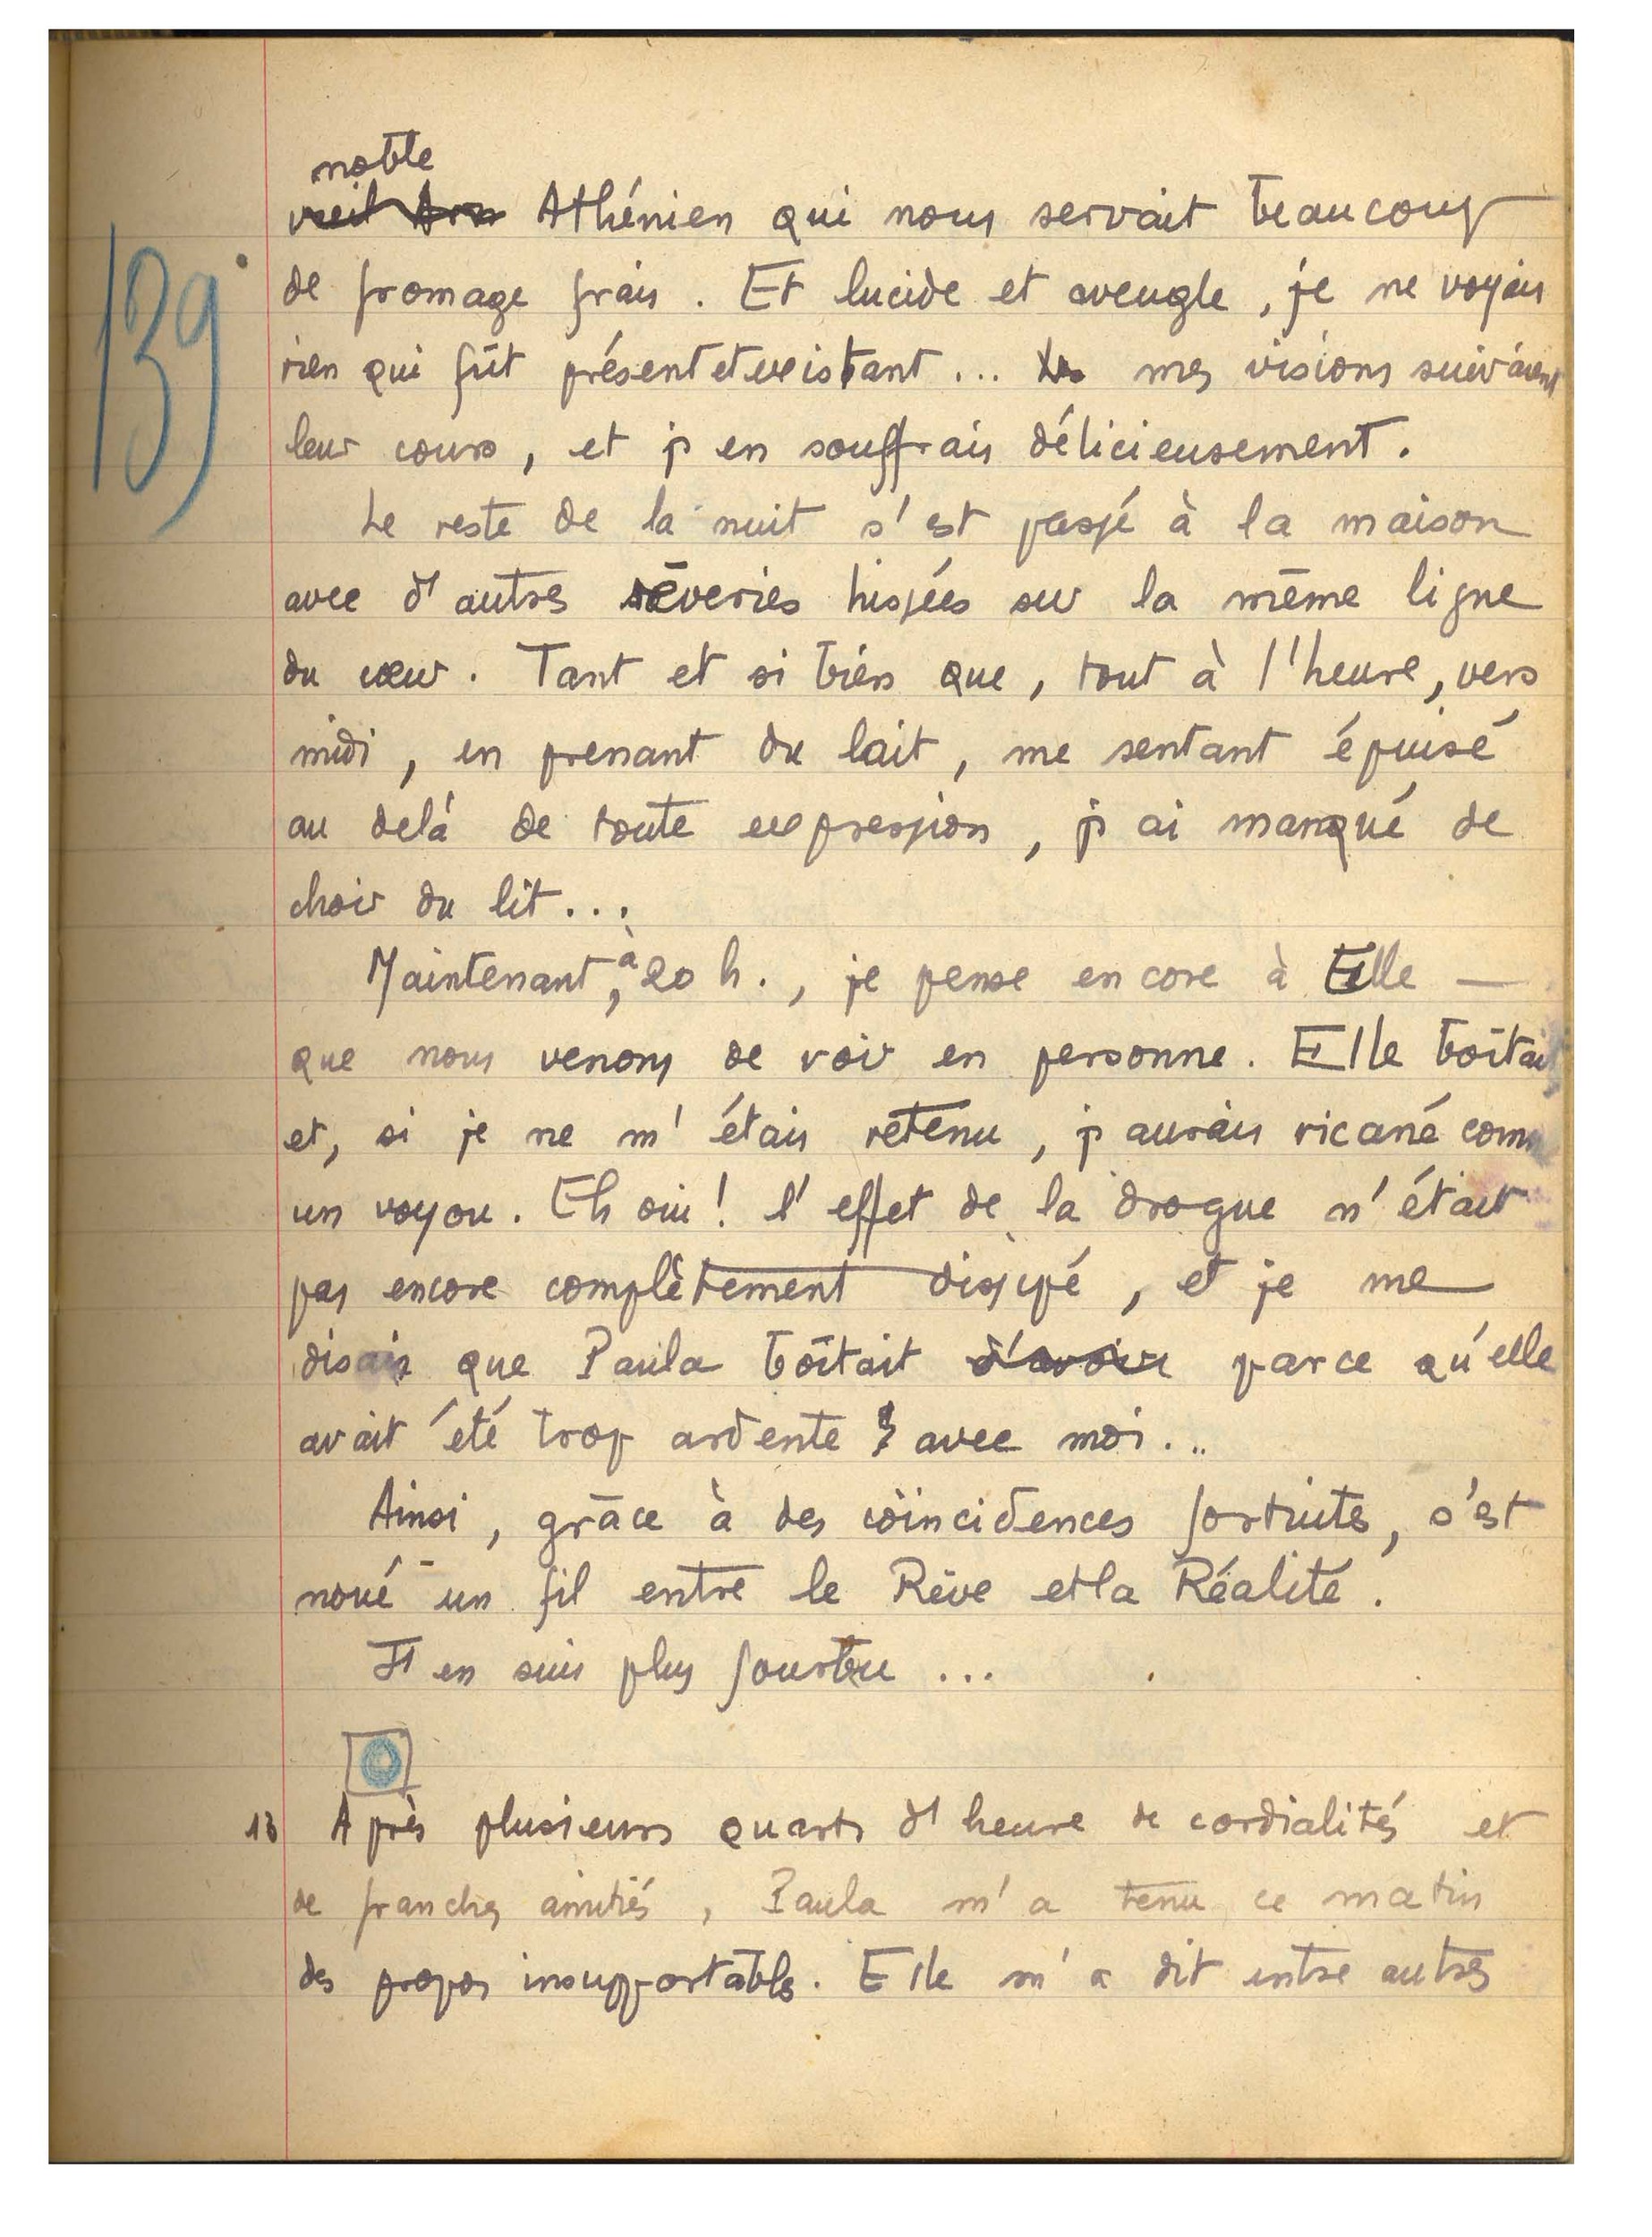 139
noble
vieil Athénien qui nous servait beaucoup
de fromage frais. Et lucide et aveugle, je ne voyais
rien qui fût présent et existant... mes visions suivaient
leur cours, et j'en souffrais délicieusement.
Le reste de la nuit s'est passé à la maison
avec d'autres rêveries hissées sur la même ligne
du cœur. Tant et si bien que, tout à l'heure, vers
midi, en prenant du lait, me sentant épuisé
au delà de toute expression, j'ai manqué de
choir du lit...
Maintenant, à 20 h., je pense encore à Elle —
que nous venons de voir en personne. Elle boîtait
et, si je ne m'étais retenu, j'aurais ricané comme
un voyou. Eh oui! l'effet de la drogue n'était
pas encore complètement dissipé, et je me
disais que Paula boîtait d'avoir parce qu'elle
avait été trop ardente avec moi...
Ainsi, grâce à des coïncidences fortuites, s'est
noué un fil entre le Rêve et la Réalité.
J'en suis plus fourbu...
13 Après plusieurs quarts d'heure de cordialités et
de franches amitiés, Paula m'a tenu ce matin
des propos insupportables. Elle m'a dit entre autres